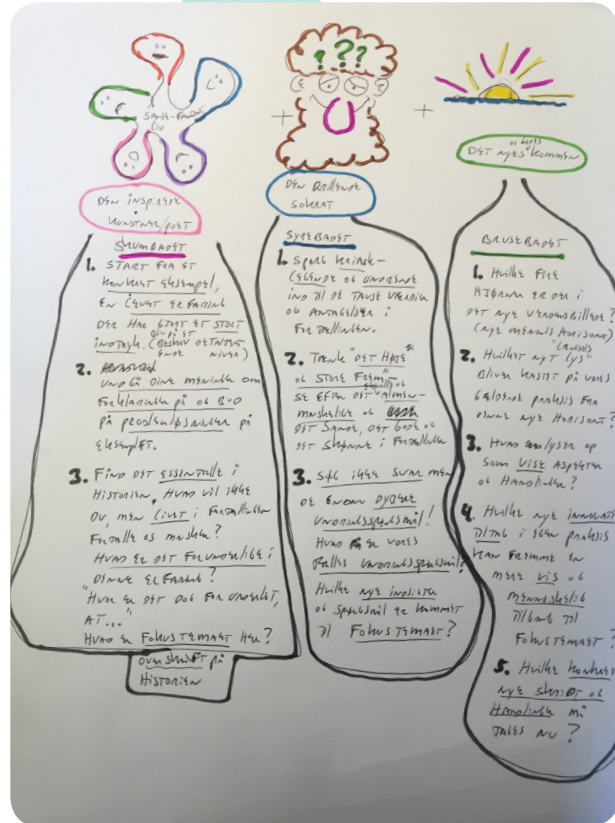 DEN INSPIREREDE
KUNSTNER/POET
SKUMBADET
1. START FRA ET
KONKRET EKSEMPEL,
EN LEVET ERFARING
DER HAR GJORT ET STORT
INDTRYK.
2.
UNDGÅ DINE MENINGER OM
FORKLARINGER PÅ OG BUD
PÅ PROBLEMLØSNINGER PÅ
EKSEMPLET.
3. FIND DET ESSENTIELLE I
HISTORIEN. HVAD VIL IKKE
DU, MEN LIVET I FORTÆLLINGEN
FORTÆLLE OS MÅSKE?
HVAD ER DET FORUNDERLIGE I
DENNE ERFARING?
"HVOR ER DET DOG FORUNDERLIGT,
AT..."
HVAD ER FOKUSTEMAET HER?
OVERSKRIFT PÅ
HISTORIEN
+
? ? ?
DEN DRILLENDE
SOKRAT
SYREBADET
1. SPØRG KRINDS-
LEGENDE OG UNDRENDE
IND TIL DE TAUSE VÆRDIER
OG ANTAGELSER I
FORTÆLLINGEN.
2. TRÆNK "DET HØJE
OG STORE FREM"
SE EFTER DET ALMEN-
MENNESKELIGE OG
DET SANDE, DET GODE OG
DET SKØNNE I FORTÆLLINGEN
3. SØG IKKE SVAR MEN
DE ENDNU DYBERE
UNDRINGSSPØRGSMÅL!
HVAD ER VORES
FÆLLES UNDRINGSSPØRGSMÅL?
HVILKE NYE INDSIGTER
OG SPØRGSMÅL ER KOMMET
TIL FOKUSTEMAET?
+
DET NYES KOMMEN
BRUSEBADET
1. HVILKE FIRE
HJØRNER ER DER I
DET NYE VERDENSBILLEDE?
(NYE MENINGS HORISONT)
2. HVILKET NYT "LYS"
BLIVER KASTET PÅ VORES
GÆLDENDE PRAKSIS FRA
DENNE NYE HORISONT?
3. HVAD ANLYSER OP
SOM VISE ASPEKTER
OG HANDLINGER?
4. HVILKE NYE INNOVATIVE
TILTAG I EGEN PRAKSIS
KAN FREMME EN
MERE VIS OG
MENNESKELIG
TILGANG TIL
FOKUSTEMAET?
5. HVILKE KONKRETE
NYE SKRIDT OG
HANDLINGER MÅ
TAGES NU?